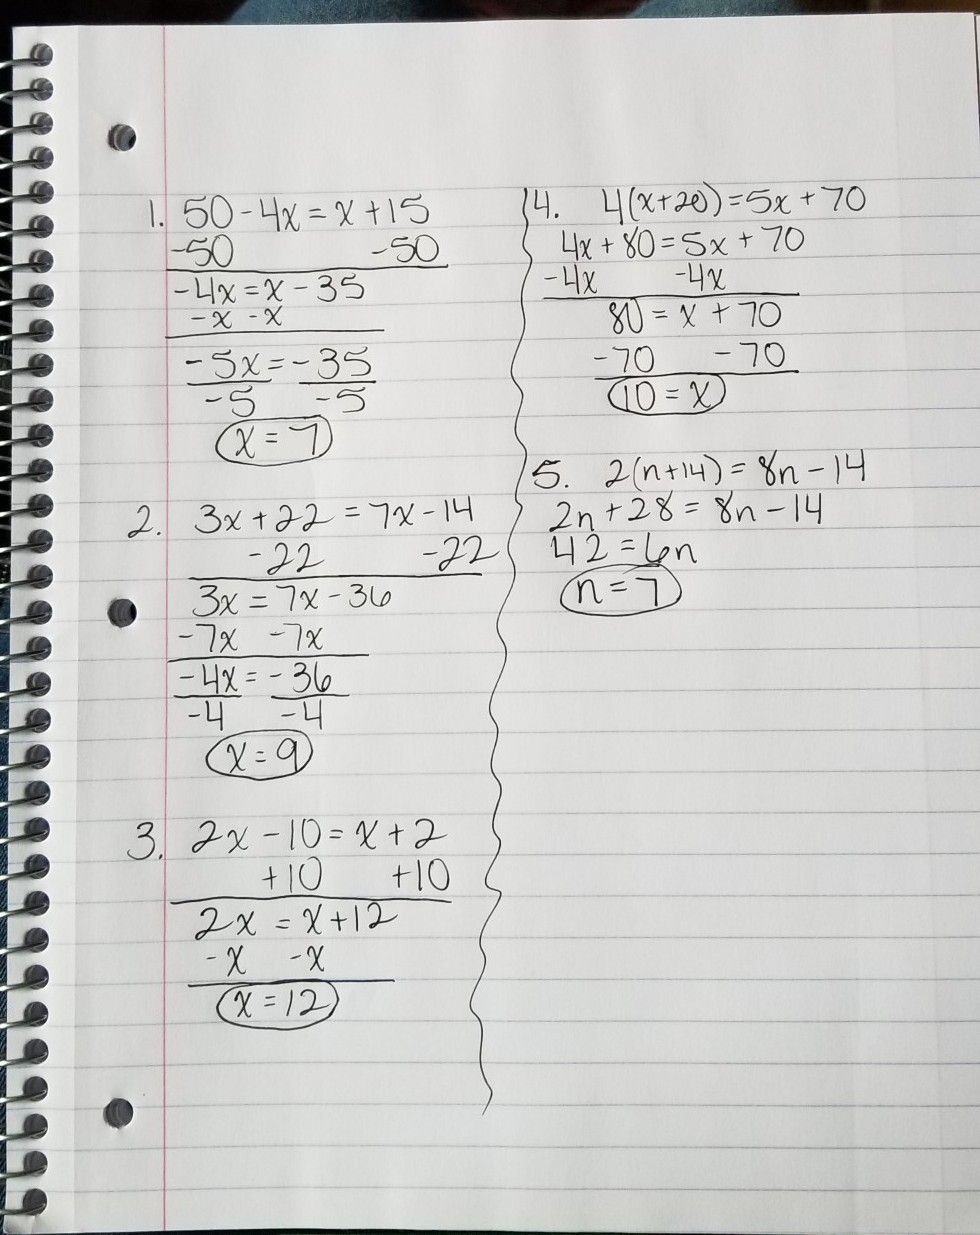 1. 50 - 4x = x + 15
-50 -50
-4x = x - 35
-x -x
-5x = -35
-5 -5
x = 7
2. 3x + 22 = 7x - 14
-22 -22
3x = 7x - 36
-7x -7x
-4x = -36
-4 -4
x = 9
3. 2x - 10 = x + 2
+10 +10
2x = x + 12
-x -x
x = 12
4. 4(x+20) = 5x + 70
4x + 80 = 5x + 70
-4x -4x
80 = x + 70
-70 -70
10 = x
5. 2(n+14) = 8n - 14
2n + 28 = 8n - 14
42 = 6n
n = 7